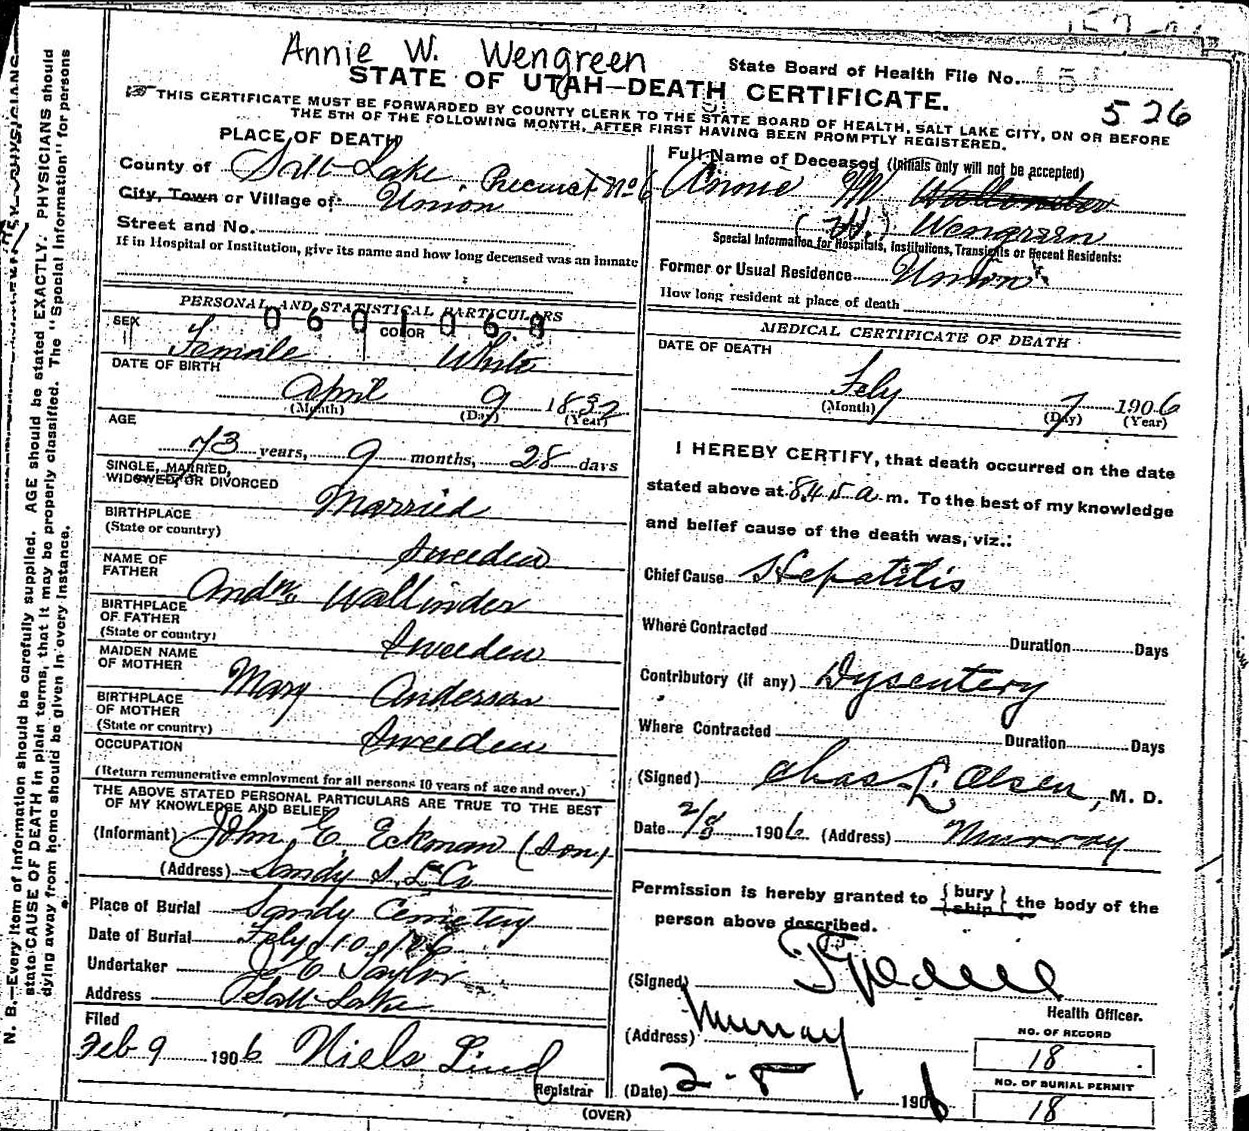 Annie W. Wengreen
State Board of Health File No.
STATE OF UTAH—DEATH CERTIFICATE.
526
THIS CERTIFICATE MUST BE FORWARDED BY COUNTY CLERK TO THE STATE BOARD OF HEALTH, SALT LAKE CITY, ON OR BEFORE
THE 5TH OF THE FOLLOWING MONTH, AFTER FIRST HAVING BEEN PROMPTLY REGISTERED.
PLACE OF DEATH
County of Salt Lake. Precinct No 6
City, Town or Village of: Union
Street and No.
If in Hospital or Institution, give its name and how long deceased was an inmate
PERSONAL AND STATISTICAL PARTICULARS
0601068
SEX Female COLOR White
DATE OF BIRTH
April 9 1832
(Month) (Day) (Year)
AGE
73 years, 9 months, 28 days
SINGLE, MARRIED,
WIDOWED, OR DIVORCED Married
BIRTHPLACE
(State or country) Sweeden
NAME OF
FATHER Andr. Wallinder
BIRTHPLACE
OF FATHER
(State or country) Sweeden
MAIDEN NAME
OF MOTHER Mary Anderson
BIRTHPLACE
OF MOTHER
(State or country) Sweeden
OCCUPATION
(Return remunerative employment for all persons 10 years of age and over.)
THE ABOVE STATED PERSONAL PARTICULARS ARE TRUE TO THE BEST
OF MY KNOWLEDGE AND BELIEF
(Informant) John E Eckman (Son)
(Address) Sandy S. L Co
Place of Burial Sandy Cemetery
Date of Burial Feby 10 1906
Undertaker Jos E Taylor
Address Salt Lake
Filed
Feb 9 1906 Niels Lind
Registrar
Full Name of Deceased (Initials only will not be accepted)
Annie M Wallender
(W.) Wengreen
Special Information for Hospitals, Institutions, Transients or Recent Residents:
Former or Usual Residence Union
How long resident at place of death
MEDICAL CERTIFICATE OF DEATH
DATE OF DEATH
Feby 7 1906
(Month) (Day) (Year)
I HEREBY CERTIFY, that death occurred on the date
stated above at 845 a m. To the best of my knowledge
and belief cause of the death was, viz.:
Chief Cause Hepatitis
Where Contracted Duration Days
Contributory (if any) Dysentery
Where Contracted Duration Days
(Signed) Chas L. Olsen, M. D.
Date 2/8 1906 (Address) Murray
Permission is hereby granted to {bury ship} the body of the
person above described.
(Signed)
Health Officer.
(Address) Murray
(Date) 2-8 1906
NO. OF RECORD
18
NO. OF BURIAL PERMIT
18
(OVER)
N. B.—Every item of information should be carefully supplied. AGE should be stated EXACTLY. PHYSICIANS should
state CAUSE OF DEATH in plain terms, that it may be properly classified. The "Special Information" for persons
dying away from home should be given in every instance.